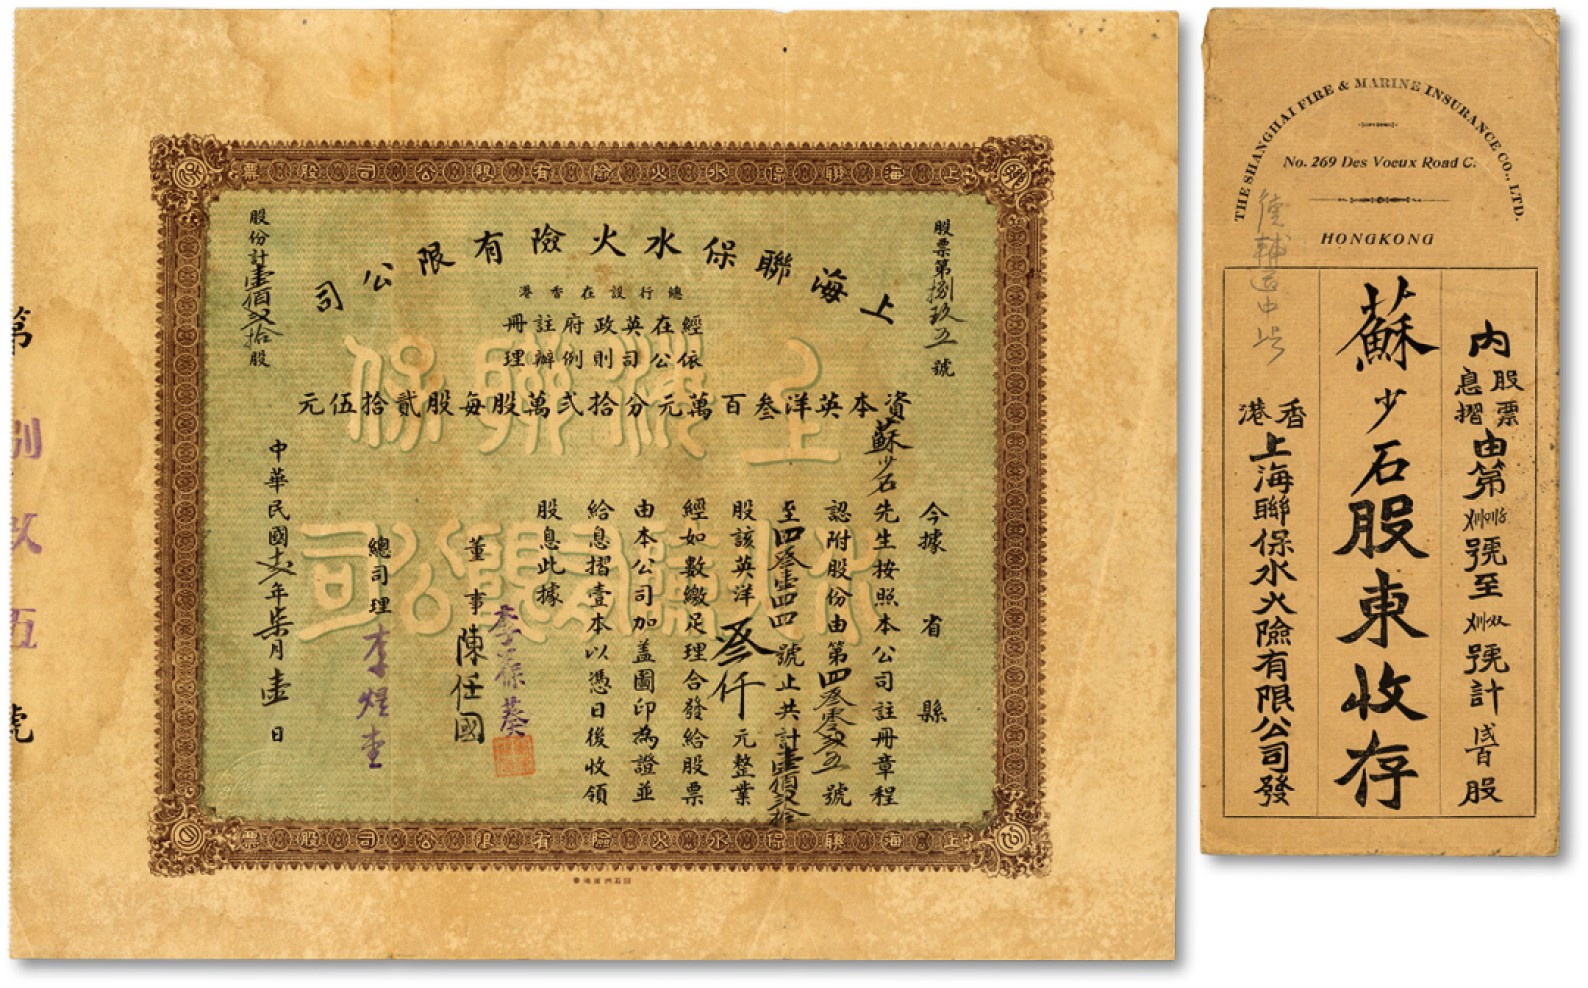 上海聯保水火險有限公司股票
股票第捌玖五號
上海聯保水火險有限公司
總行設在香港
經在英政府註冊
依公司則例辦理
資本英洋叁百萬元分拾弍萬股每股貳拾伍元
今據 省 縣
蘇少石先生按照本公司註冊章程
認附股份由第四叁零弍五號
至四叁壹四四號止共計壹佰弍拾
股該英洋叁仟元整業
經如數繳足理合發給股票
由本公司加盖圖印為證並
給息摺壹本以憑日後收領
股息此據
董事 李葆葵
陳任國
總司理 李煜堂
中華民國年柒月壹日
股份計壹佰弍拾股
上海聯保水火險有限公司
第捌玖五號
上海聯保水火險有限公司股票
THE SHANGHAI FIRE & MARINE INSURANCE CO., LTD.
No. 269 Des Voeux Road C.
HONGKONG
德輔道中
內股票息摺由第號至號計股
蘇少石股東收存
香港上海聯保水火險有限公司發